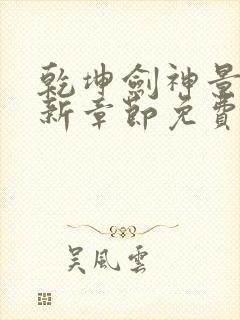 乾坤劍神景
新章節免費
吴風雲